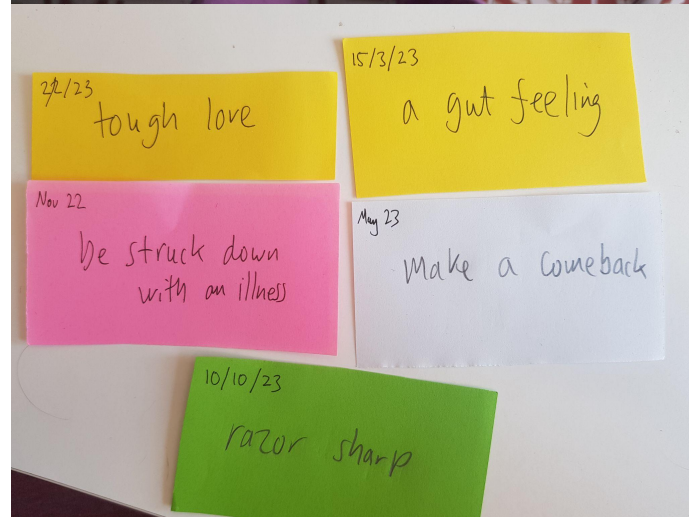 2/2/23
tough love
15/3/23
a gut feeling
Nov 22
be struck down
with an illness
May 23
make a comeback
10/10/23
razor sharp